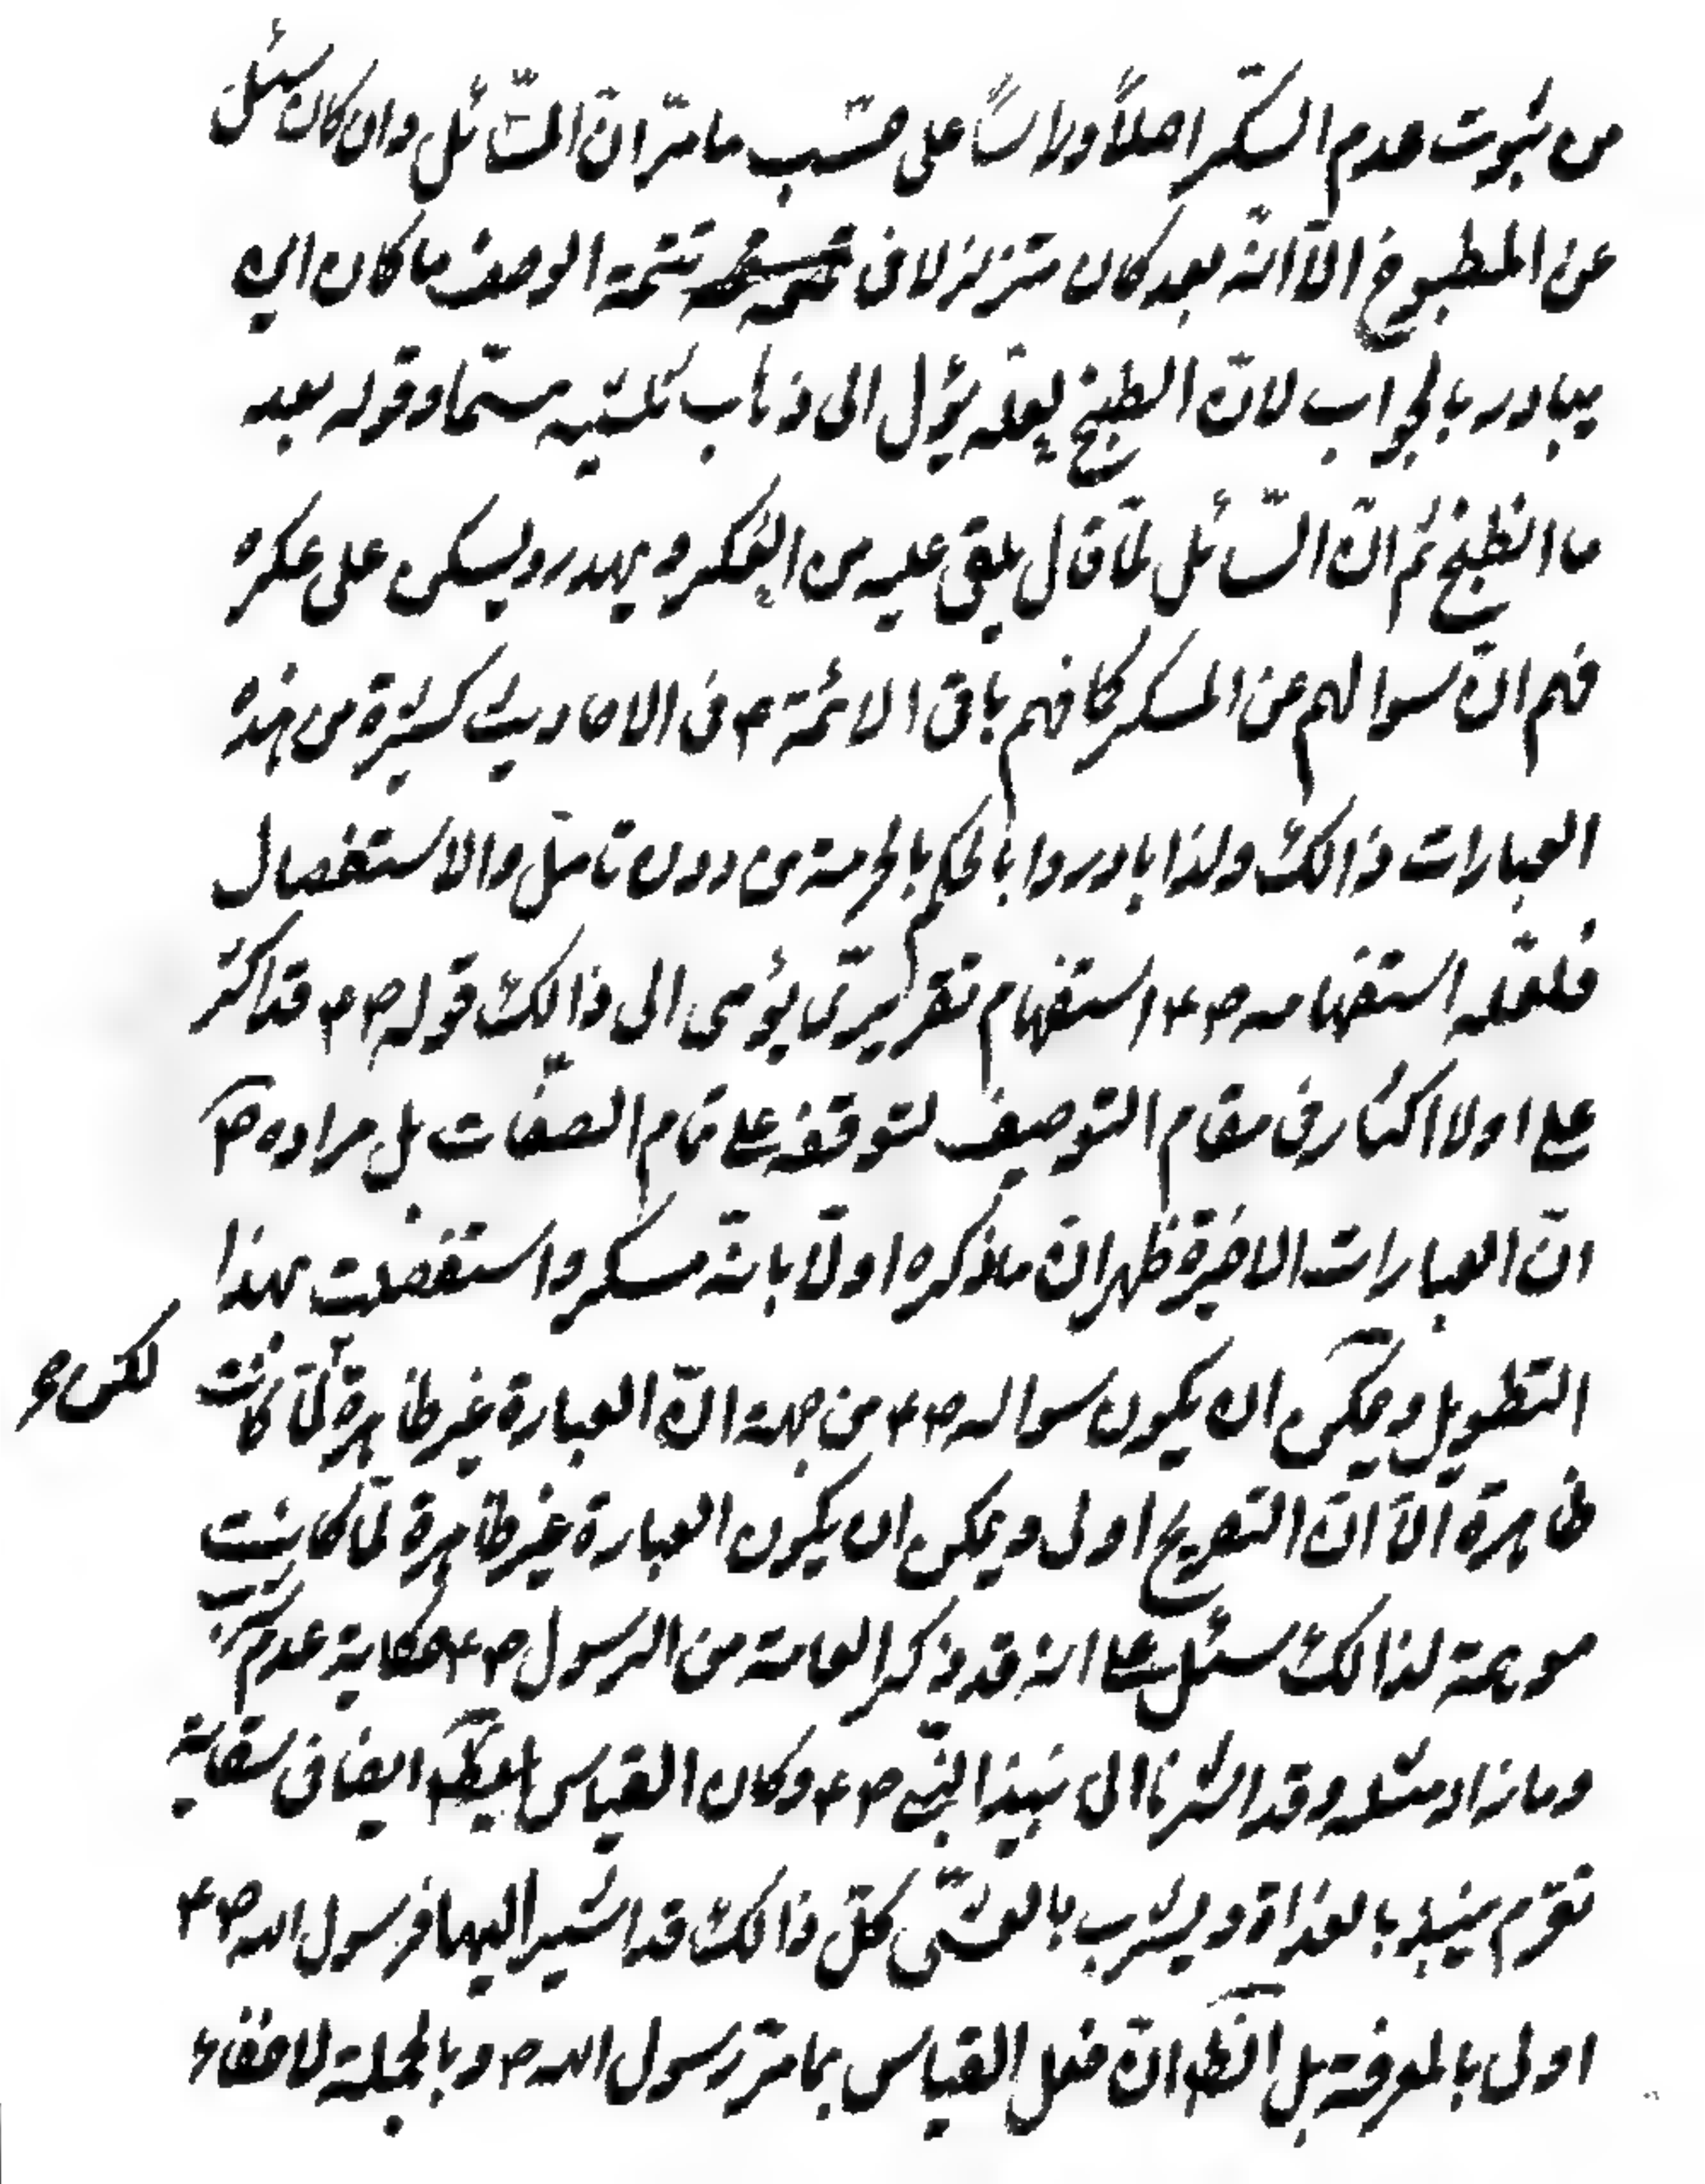 من ثبوت عدم السكر اصلاً وراساً على حسب ما مرّ انّ السّائل وان كان سئل
عن المطبوخ الاّ انّه بعد كان متزلزلا فى تتمة الوصف ما كان ان
يبادر بالجواب لانّ الطبخ لعلّه يؤل الى ذهاب ثلثيه مستما وقوله بعد
ما انطبخ ثم انّ السّائل لمّا قال يلقى عليه من العكر و يهدر ويسكن على عكره
فهم انّ سوالهم عن المسكر كما فهم باقى الائمّة ع فى الاحاديث كثيرة من هذه
العبارات ذالك ولذا بادروا بالحكم بالحرمة من دون تامّل والاستفصال
فلعلّه استفهامه ص ع استفهام تقريرىّ يؤمى الى ذالك قوله ص ع قد اكثرت
على اولا اكثار فى مقام التوصيف لتوقفه على تمام الصّفات بل مراده ص
انّ العبارات الاخيرة ظهر انّ ما ذكره اوّلاً بانّه مسكر واستفضلت بهذا
التطويل ويمكن ان يكون سواله ص ع من جهة انّ العبارة غير ظاهرة لمّا كانت لكن و
ظاهرة الاّ انّ التصريح اولى ويمكن ان يكون العبارة غير ظاهرة لمّا كانت
موهمة لذالك سئل على انه قد ذكر العامة من الرسول ص ع حكاية عدم
وما زاد مثله وقد اشرنا الى نبيذ النبىّ ص ع وكان القياس ايضا فى سقاية
زمزم ينبذ بالغداة ويشرب بالعشىّ كلّ ذالك قد اشير اليها فرسول الله ص ع
اولى بالمعرفة بل الظ انّ فعل القياس بامر رسول الله ص و بالجملة لا خفاء